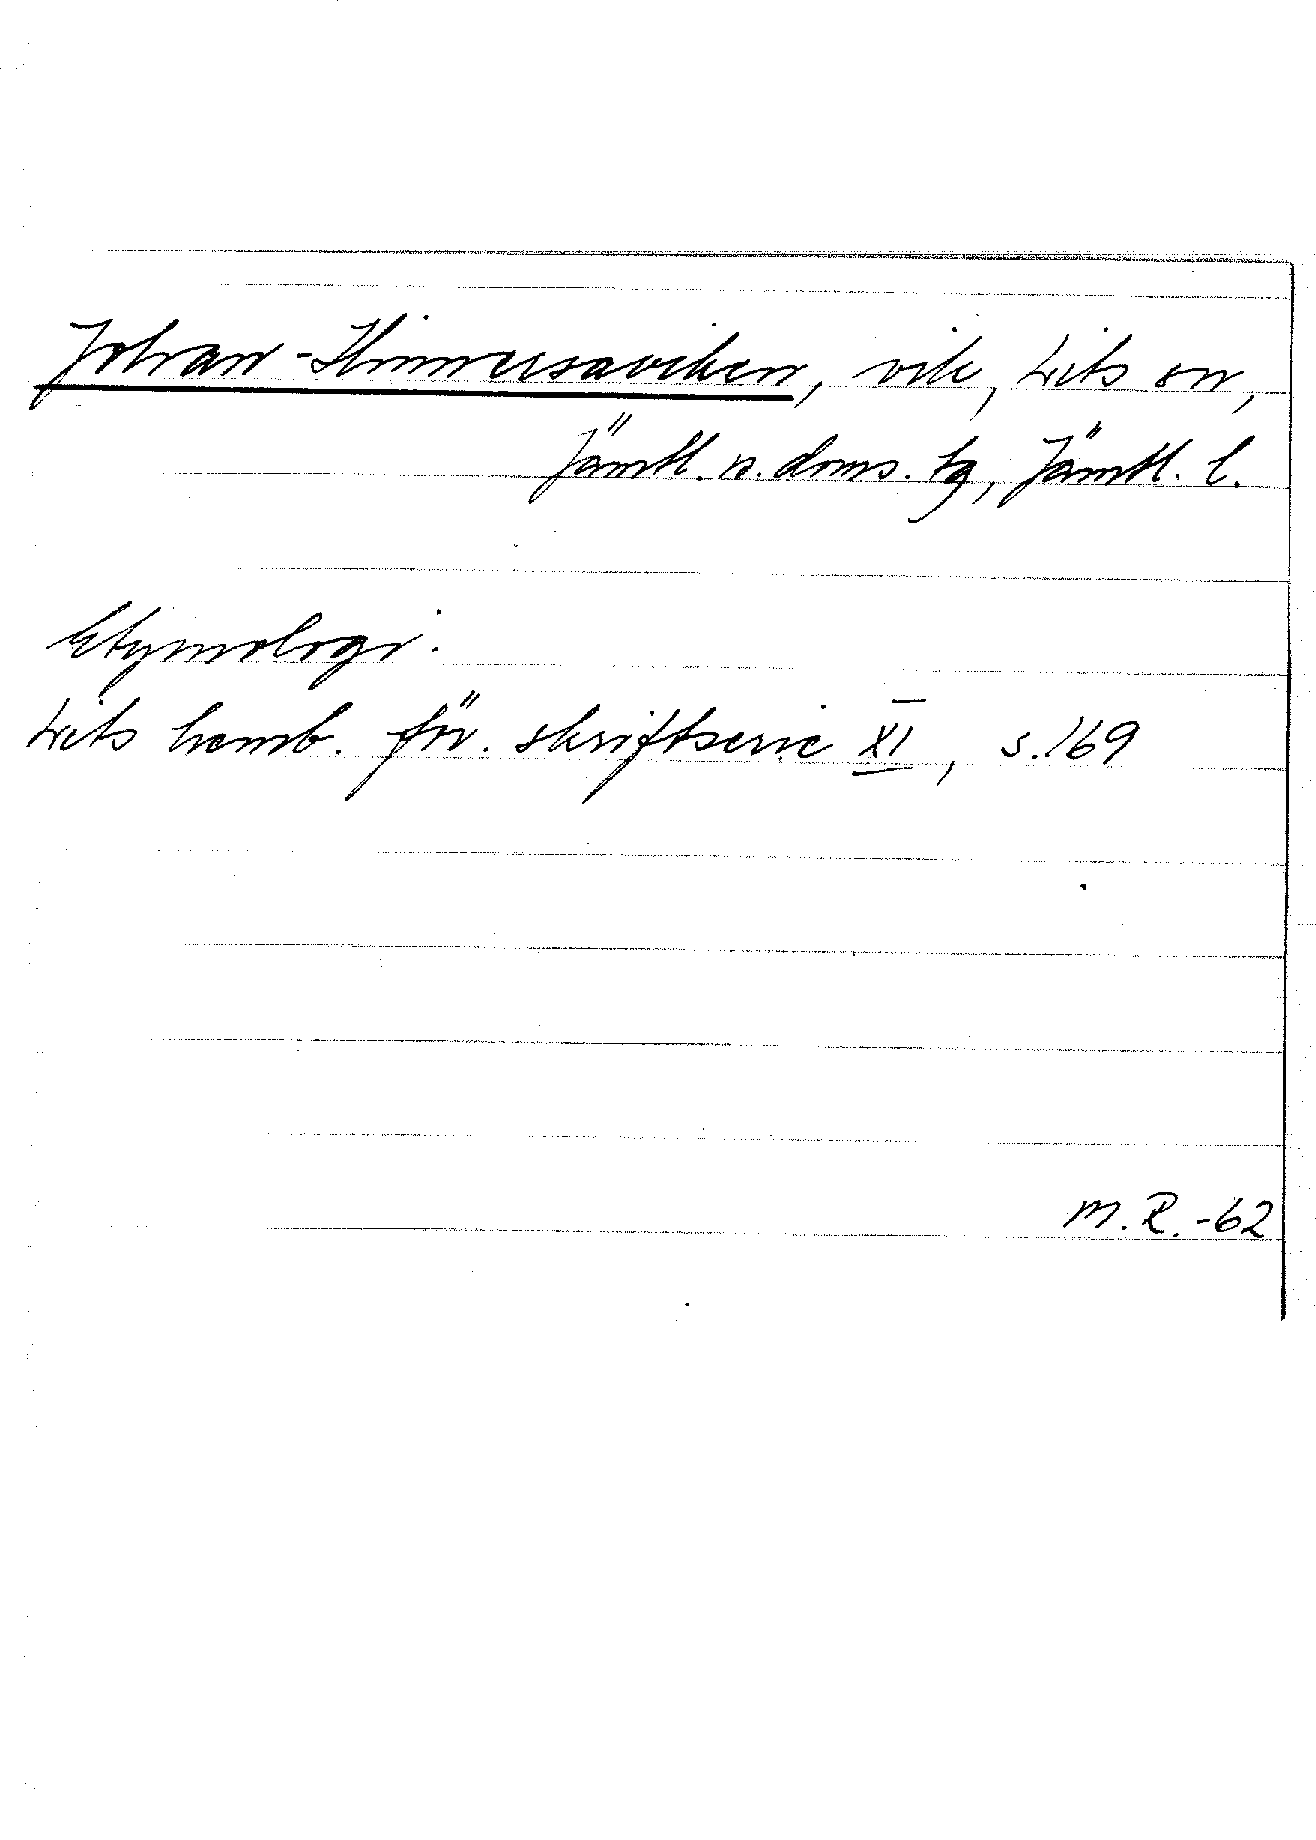 Johan-Hinnersaviken, vik, Lits sn,
Jämtl. n. doms. tg, Jämtl. l.
Etymologi.
Lits hemb. för. skriftserie XI, s. 169
M. R. -62